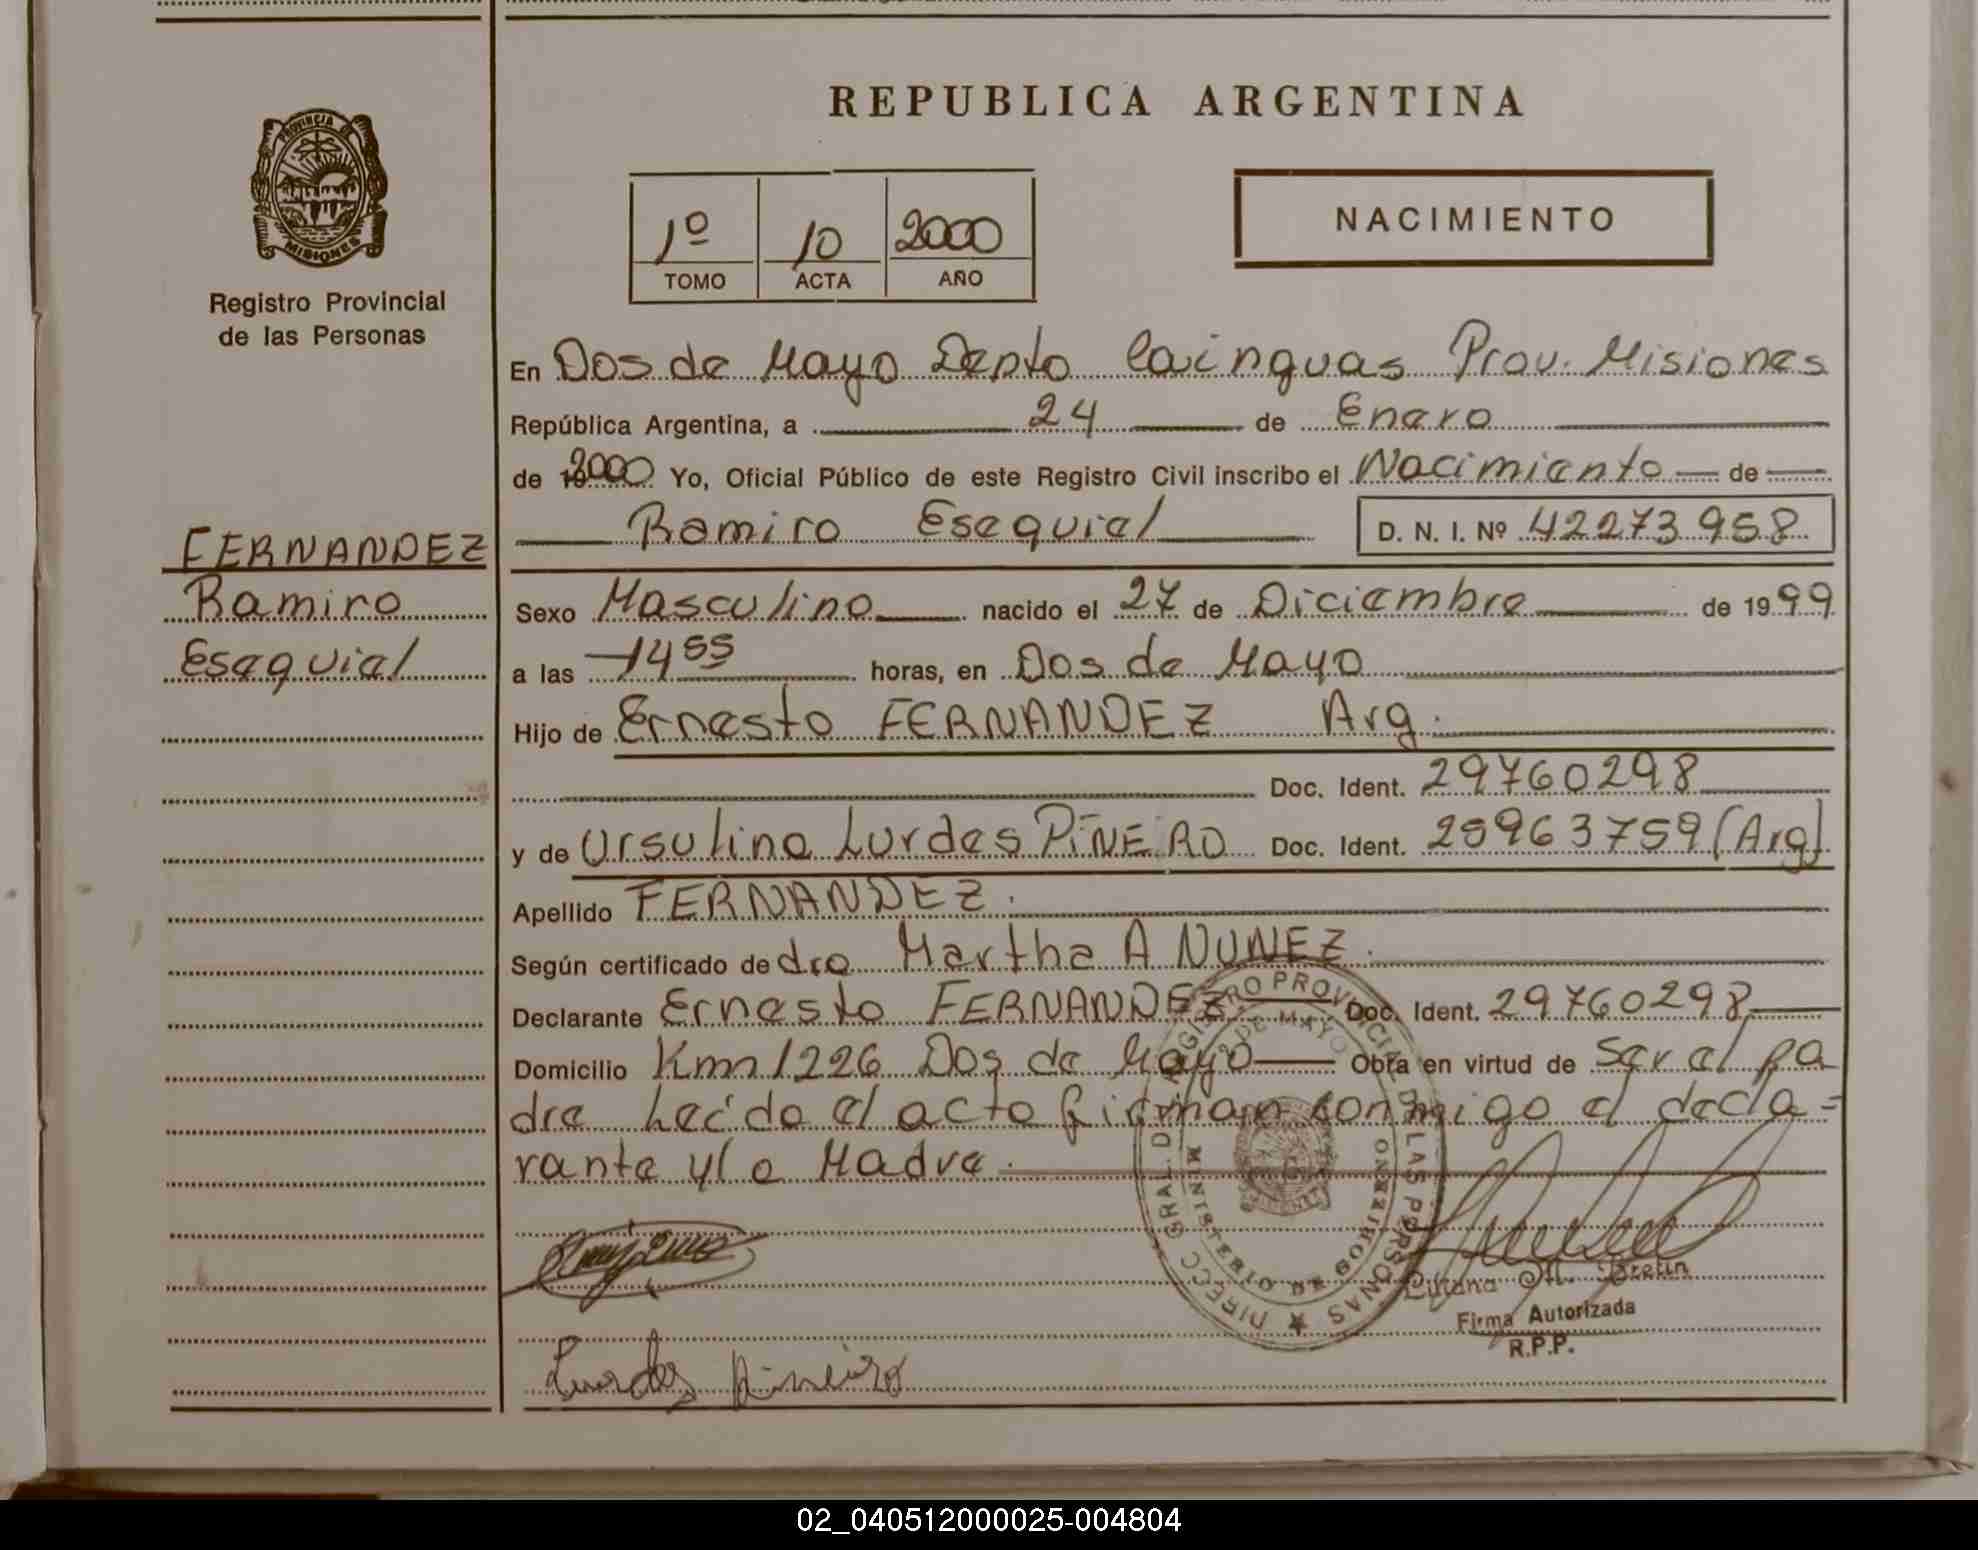 REPUBLICA ARGENTINA
PROVINCIA DE
MISIONES
Registro Provincial
de las Personas
1º 10 2000
TOMO ACTA AÑO
NACIMIENTO
En Dos de Mayo Depto Cainguas Prov. Misiones
República Argentina, a 24 de Enero
de 2000 Yo, Oficial Público de este Registro Civil inscribo el Nacimiento de
Ramiro Esequiel D. N. I. Nº 42273958
FERNANDEZ
Ramiro
Esequiel
Sexo Masculino nacido el 27 de Diciembre de 1999
a las 14 55 horas, en Dos de Mayo
Hijo de Ernesto FERNANDEZ Arg.
Doc. Ident. 29760298
y de Ursulina Lurdes PIÑEIRO Doc. Ident. 25963759 (Arg)
Apellido FERNANDEZ.
Según certificado de dra Martha A NUNEZ.
Declarante Ernesto FERNANDEZ Doc. Ident. 29760298
Domicilio Km 1226 Dos de Mayo Obra en virtud de ser el pa
dre Leido el acto firman conmigo el decla=
rante y/o Madre.
DIRECC. GRAL. DE REGISTRO PROVINCIAL DE LAS PERSONAS
2 DE MAYO
MINISTERIO DE GOBIERNO
Lurdes Piñeiro
Firma Autorizada
R.P.P.
02_040512000025-004804